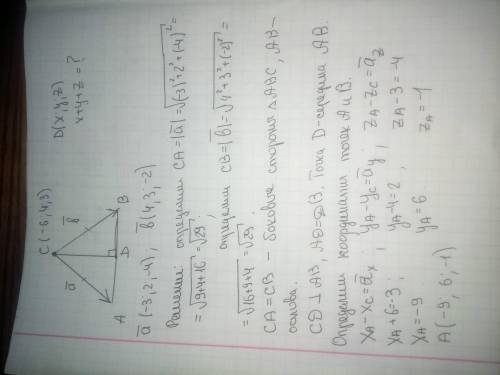 C(-6; 4; 3)
D(x; y; z)
x+y+z=?
a̅
b̅
A
D
B
a̅ (-3; 2; -4), b̅ (4; 3; -2)
Решение: определим CA=|a̅|=√(-3)²+2²+(-4)²=
=√9+4+16=√29;
определим CB=|b̅|=√4²+3²+(-2)²=
=√16+9+4=√29.
CA=CB – боковые стороны △ABC, AB–
основа.
CD⊥AB, AD=DB. Точка D-середина AB.
Определим координаты точек A и B.
x_A-x_C=a̅_x ; y_A-y_C=a̅_y ; z_A-z_C=a̅_z
x_A+6=-3; y_A-4=2; z_A-3=-4
x_A=-9 y_A=6 z_A=-1
A(-9; 6; -1)